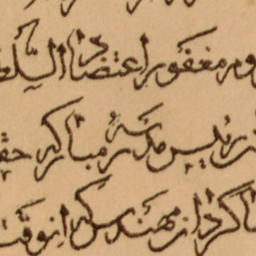 مغفور اعتضاد السلط
رئیس مدرسه مبارکه
شاگرد از مهندس که انوقت